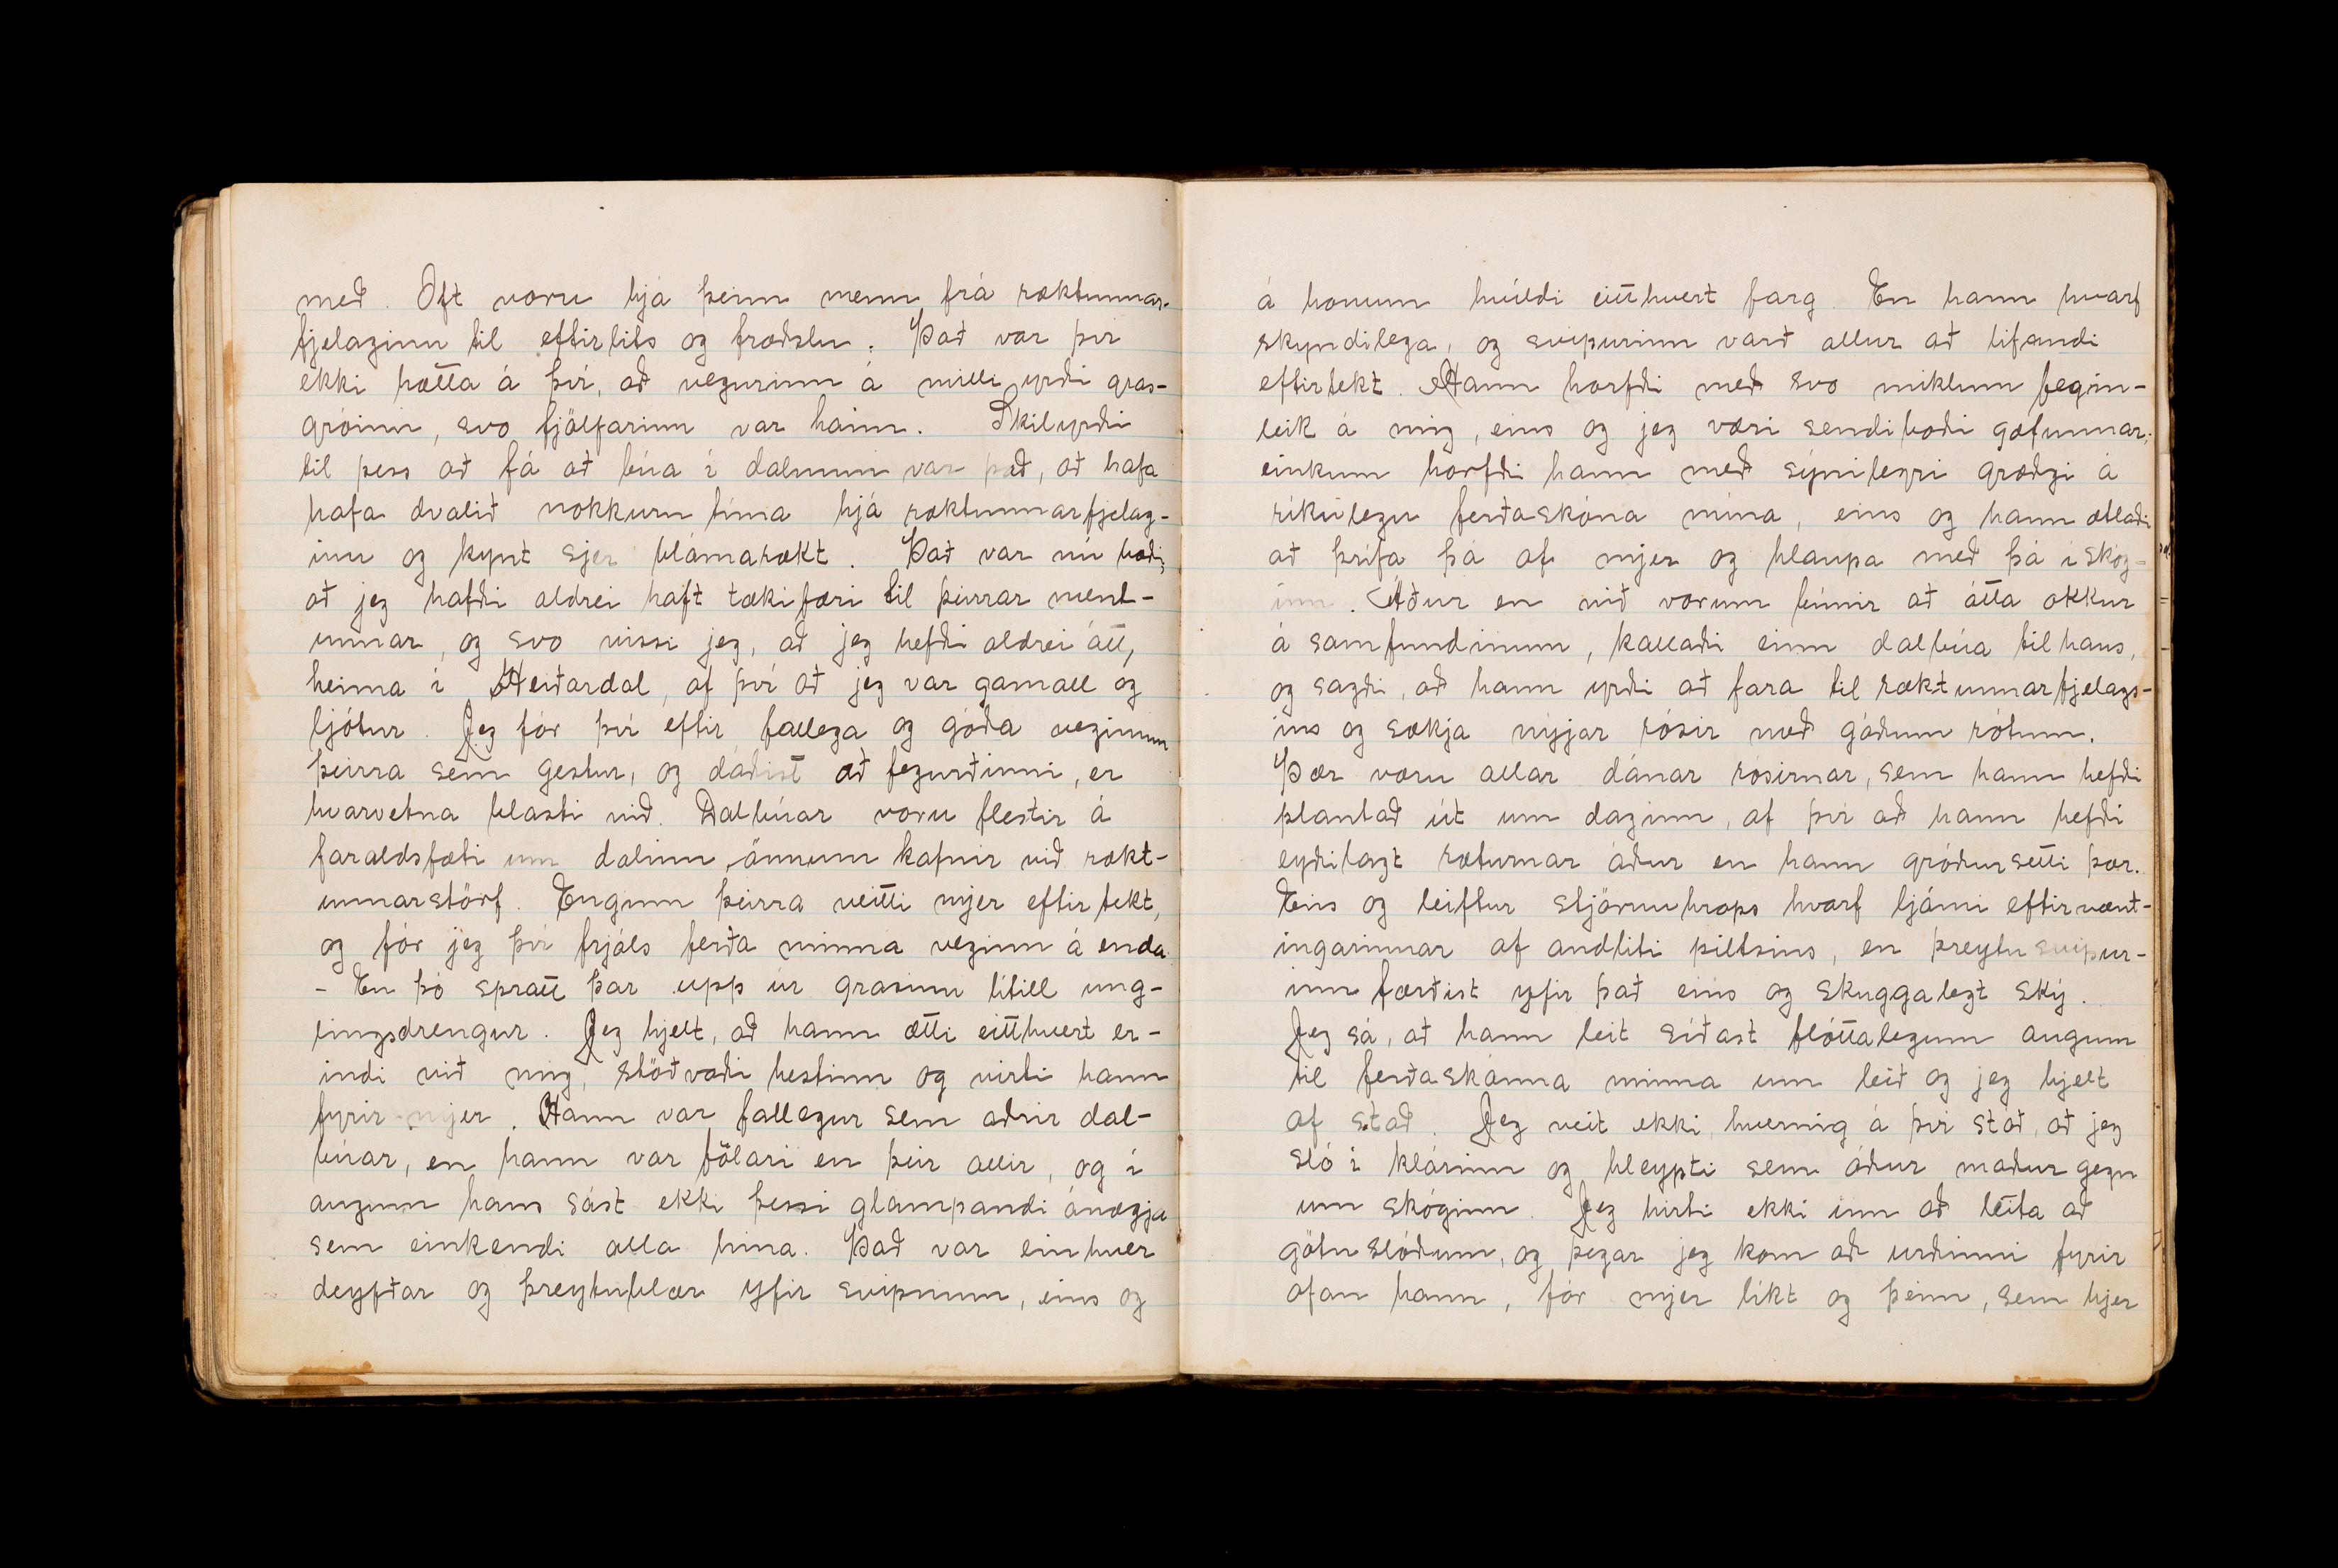 með. Oft voru hjá þeim menn frá ræktunnar-
fjelaginu til eftirlits og fræðslu. Það var því
ekki hætta á því, að vegurinn á milli yrði gras-
gróinn, svo fjölfarinn var hann. Skilyrði
til þess að fá að búa í dalnum var það, að hafa
hafa dvalið nokkurn tíma hjá ræktunnarfjelag-
inu og kynt sjer blómarækt. Það var nú bæði,
að jeg hafði aldrei haft tækifæri til þeirrar ment-
unnar, og svo vissi jeg, að jeg hefði aldrei átt,
heima í Heiðardal, af því að jeg var gamall og
ljótur. Jeg fór því eftir fallega og góða veginum
þeirra sem gestur, og dáðist að fegurðinni, er
hvarvetna blasti við. Dalbúar voru flestir á
faraldsfæti um dalinn, önnum kafnir við rækt-
unnarstörf. Enginn þeirra veitti mjer eftirtekt,
og fór jeg því frjáls ferða minna veginn á enda.
- En þó spratt þar upp úr grasinu lítill ung-
lingsdrengur. Jeg hjelt, að hann ætti eitthvert er-
indi við mig, stöðvaði hestinn og virti hann
fyrir mjer. Hann var fallegur sem aðrir dal-
búar, en hann var fölari en þeir allir, og í
augum hans sást ekki þessi glampandi ánægja
sem einkendi alla hina. Það var einhver
deyfðar og þreytublær yfir svipnum, eins og
á honum hvíldi eitthvert farg. En hann hvarf
skyndilega, og svipurinn varð allur að lifandi
eftirtekt. Hann horfði með svo miklum fegin-
leik á mig, eins og jeg væri sendiboði gæfunnar;
einkum horfði hann með sýnilegri græðgi á
ríkulegu ferðaskóna mína, eins og hann ætlaði
að þrífa þá af mjer og hlaupa með þá í skóg-
inn. Áður en við vorum búnir að átta okkur
á samfundinum, kallaði einn dalbúa til hans,
og sagði, að hann yrði að fara til ræktunnarfjelags-
ins og sækja nýjar rósir með góðum rótum.
Þær væru allar dánar rósirnar, sem hann hefði
plantað út um daginn, af því að hann hefði
eyðilagt ræturnar áður en hann gróðursetti þær.
Eins og leiftur stjörnuhraps hvarf ljómi eftirvænt-
ingarinnar af andliti piltsins, en þreytusvipur-
inn færðist yfir það eins og skuggalegt ský.
Jeg sá, að hann leit síðast flóttalegum augum
til ferðaskónna minna um leið og jeg hjelt
af stað. Jeg veit ekki, hvernig á því stóð, að jeg
sló í klárinn og hleypti sem óður maður gegn
um skóginn. Jeg hirti ekki inn að leita að
götuslóðum, og þegar jeg kom að urðinni fyrir
ofan hann, fór mjer líkt og þeim, sem hjer